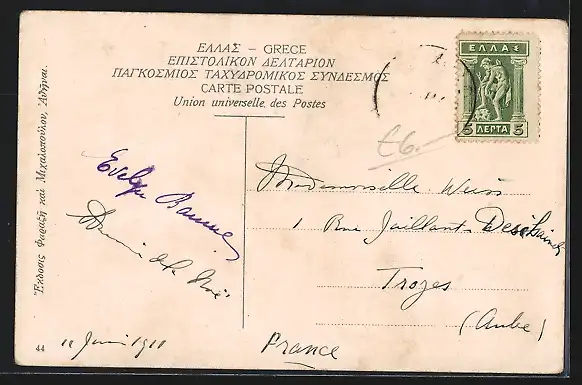 ΕΛΛΑΣ – GRECE
ΕΠΙΣΤΟΛΙΚΟΝ ΔΕΛΤΑΡΙΟΝ
ΠΑΓΚΟΣΜΙΟΣ ΤΑΧΥΔΡΟΜΙΚΟΣ ΣΥΝΔΕΣΜΟΣ
CARTE POSTALE
Union universelle des Postes
ΕΛΛΑΣ
5 ΛΕΠΤΑ 5
£6.—
Ἔκδοσις Φαραζῆ καὶ Μιχαλοπούλου, Ἀθῆναι.
Evelyn
Mademoiselle Weiss
1 Rue Jaillant Deschainets
Troyes
(Aube)
France
44
11 Juin 1911